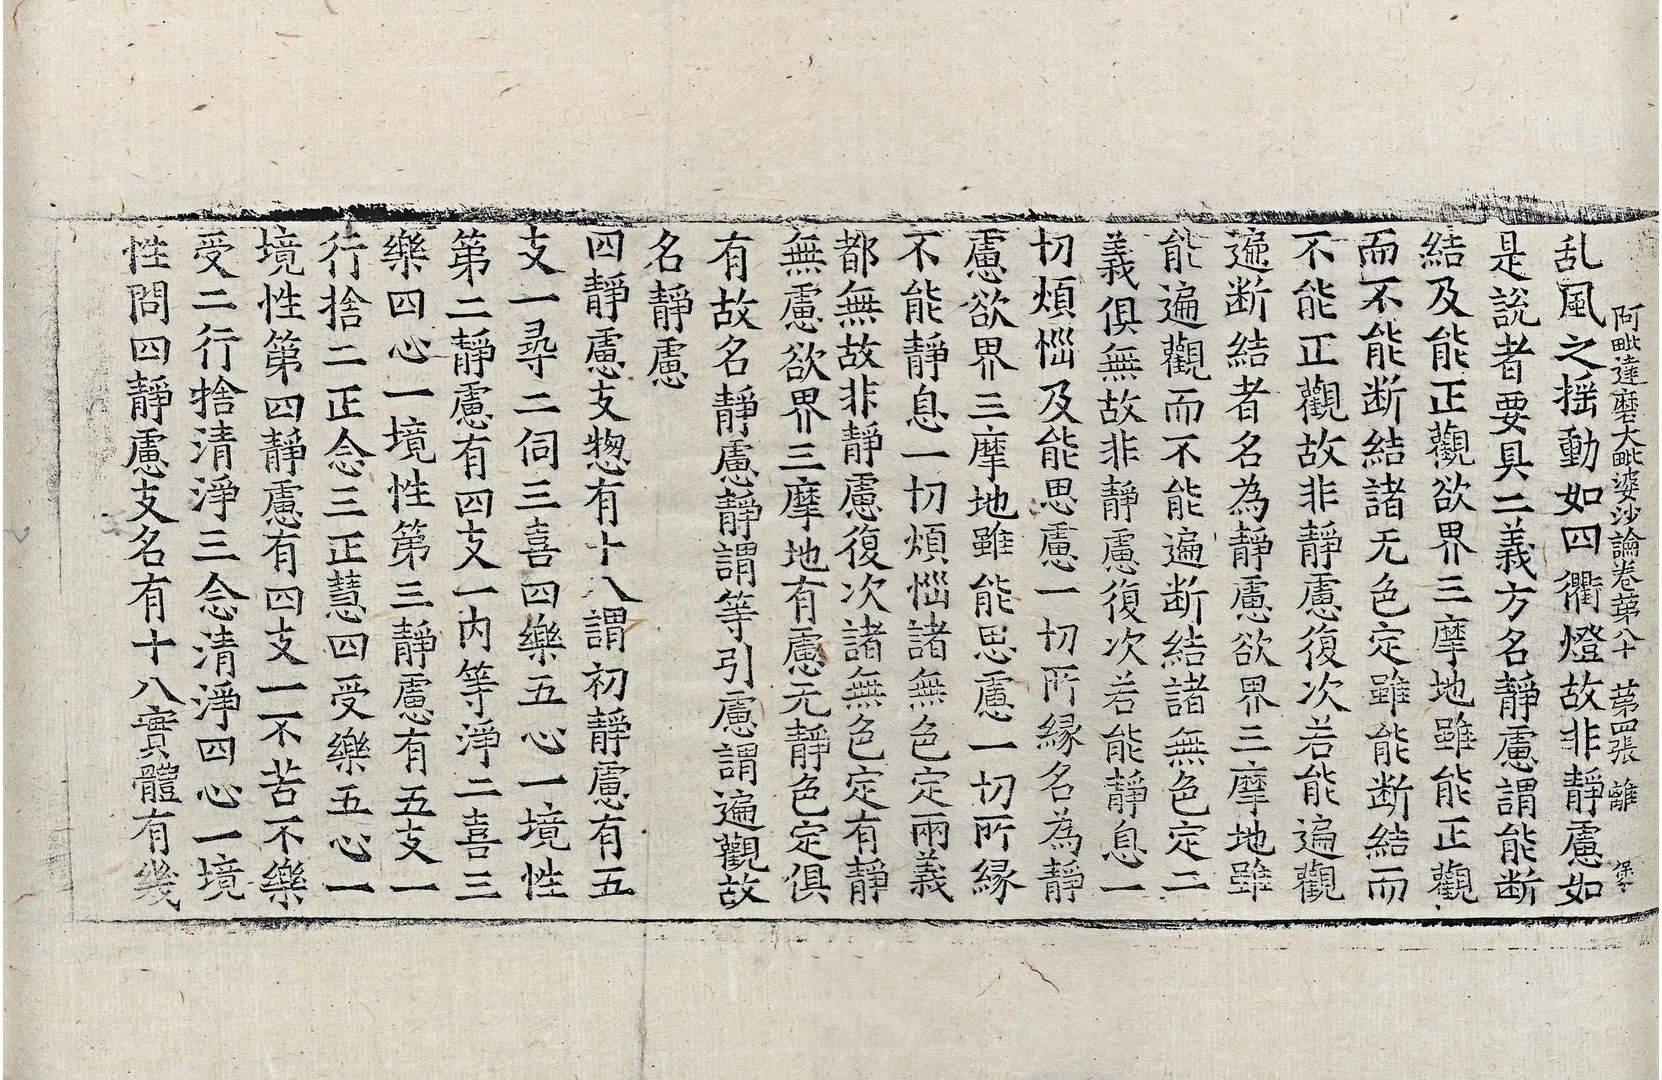 阿毗達磨大毗婆沙論卷苐八十 苐四張 離
乱風之揺動如四衢燈故非靜慮如
是說者要具二義方名靜慮謂能斷
結及能正觀欲界三摩地雖能正觀
而不能断結諸无色定雖能断結而
不能正觀故非靜慮復次若能遍觀
遍断結者名為靜慮欲界三摩地雖
能遍觀而不能遍断結諸無色定二
義俱無故非靜慮復次若能靜息一
切煩惱及能思慮一切所緣名為靜
慮欲界三摩地雖能思慮一切所緣
不能靜息一切煩惱諸無色定兩義
都無故非靜慮復次諸無色定有靜
無慮欲界三摩地有慮无靜色定俱
有故名靜慮靜謂等引慮謂遍觀故
名靜慮
四靜慮支惣有十八謂初靜慮有五
支一尋二伺三喜四樂五心一境性
第二靜慮有四支一内等淨二喜三
樂四心一境性第三靜慮有五支一
行捨二正念三正慧四受樂五心一
境性第四靜慮有四支一不苦不樂
受二行捨清淨三念清淨四心一境
性問四靜慮支名有十八實體有幾